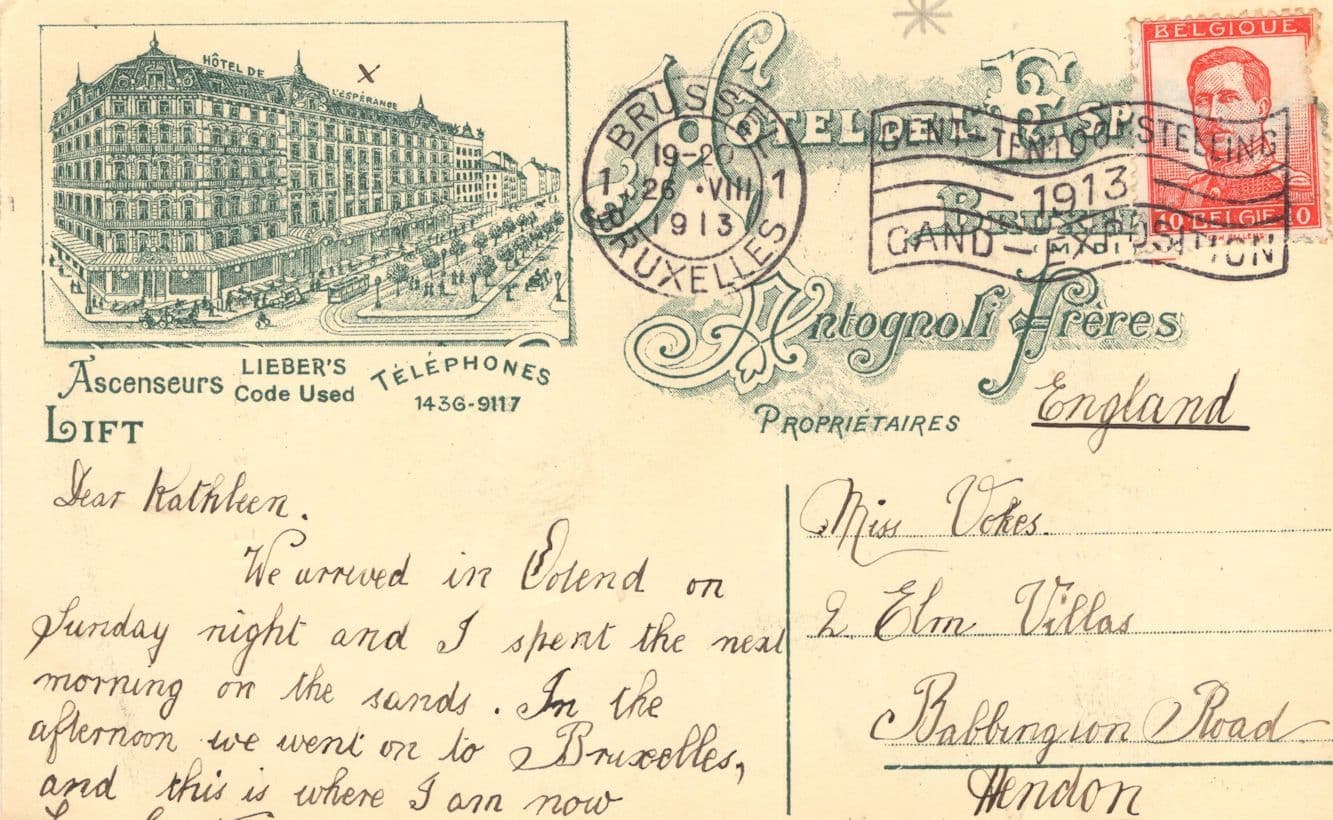 HÔTEL DE L'ESPÉRANCE
BRUSSEL
19-20
1 26 ·VIII 1
1913
BRUXELLES
HÔTEL DE L' ESP
BRUXE
MIDI
Antognoli Frères
PROPRIÉTAIRES
BELGIQUE
BELGIE
GENT-TENTOORSTELLING
1913
GAND-EXPOSITION
ASCENSEURS
LIFT
LIEBER'S
Code Used
TÉLÉPHONES
1436-9117
Dear Kathleen.
We arrived in Ostend on
Sunday night and I spent the next
morning on the sands. In the
afternoon we went on to Bruxelles,
and this is where I am now
England
Miss Vokes.
2. Elm Villas
Babbington Road.
Hendon